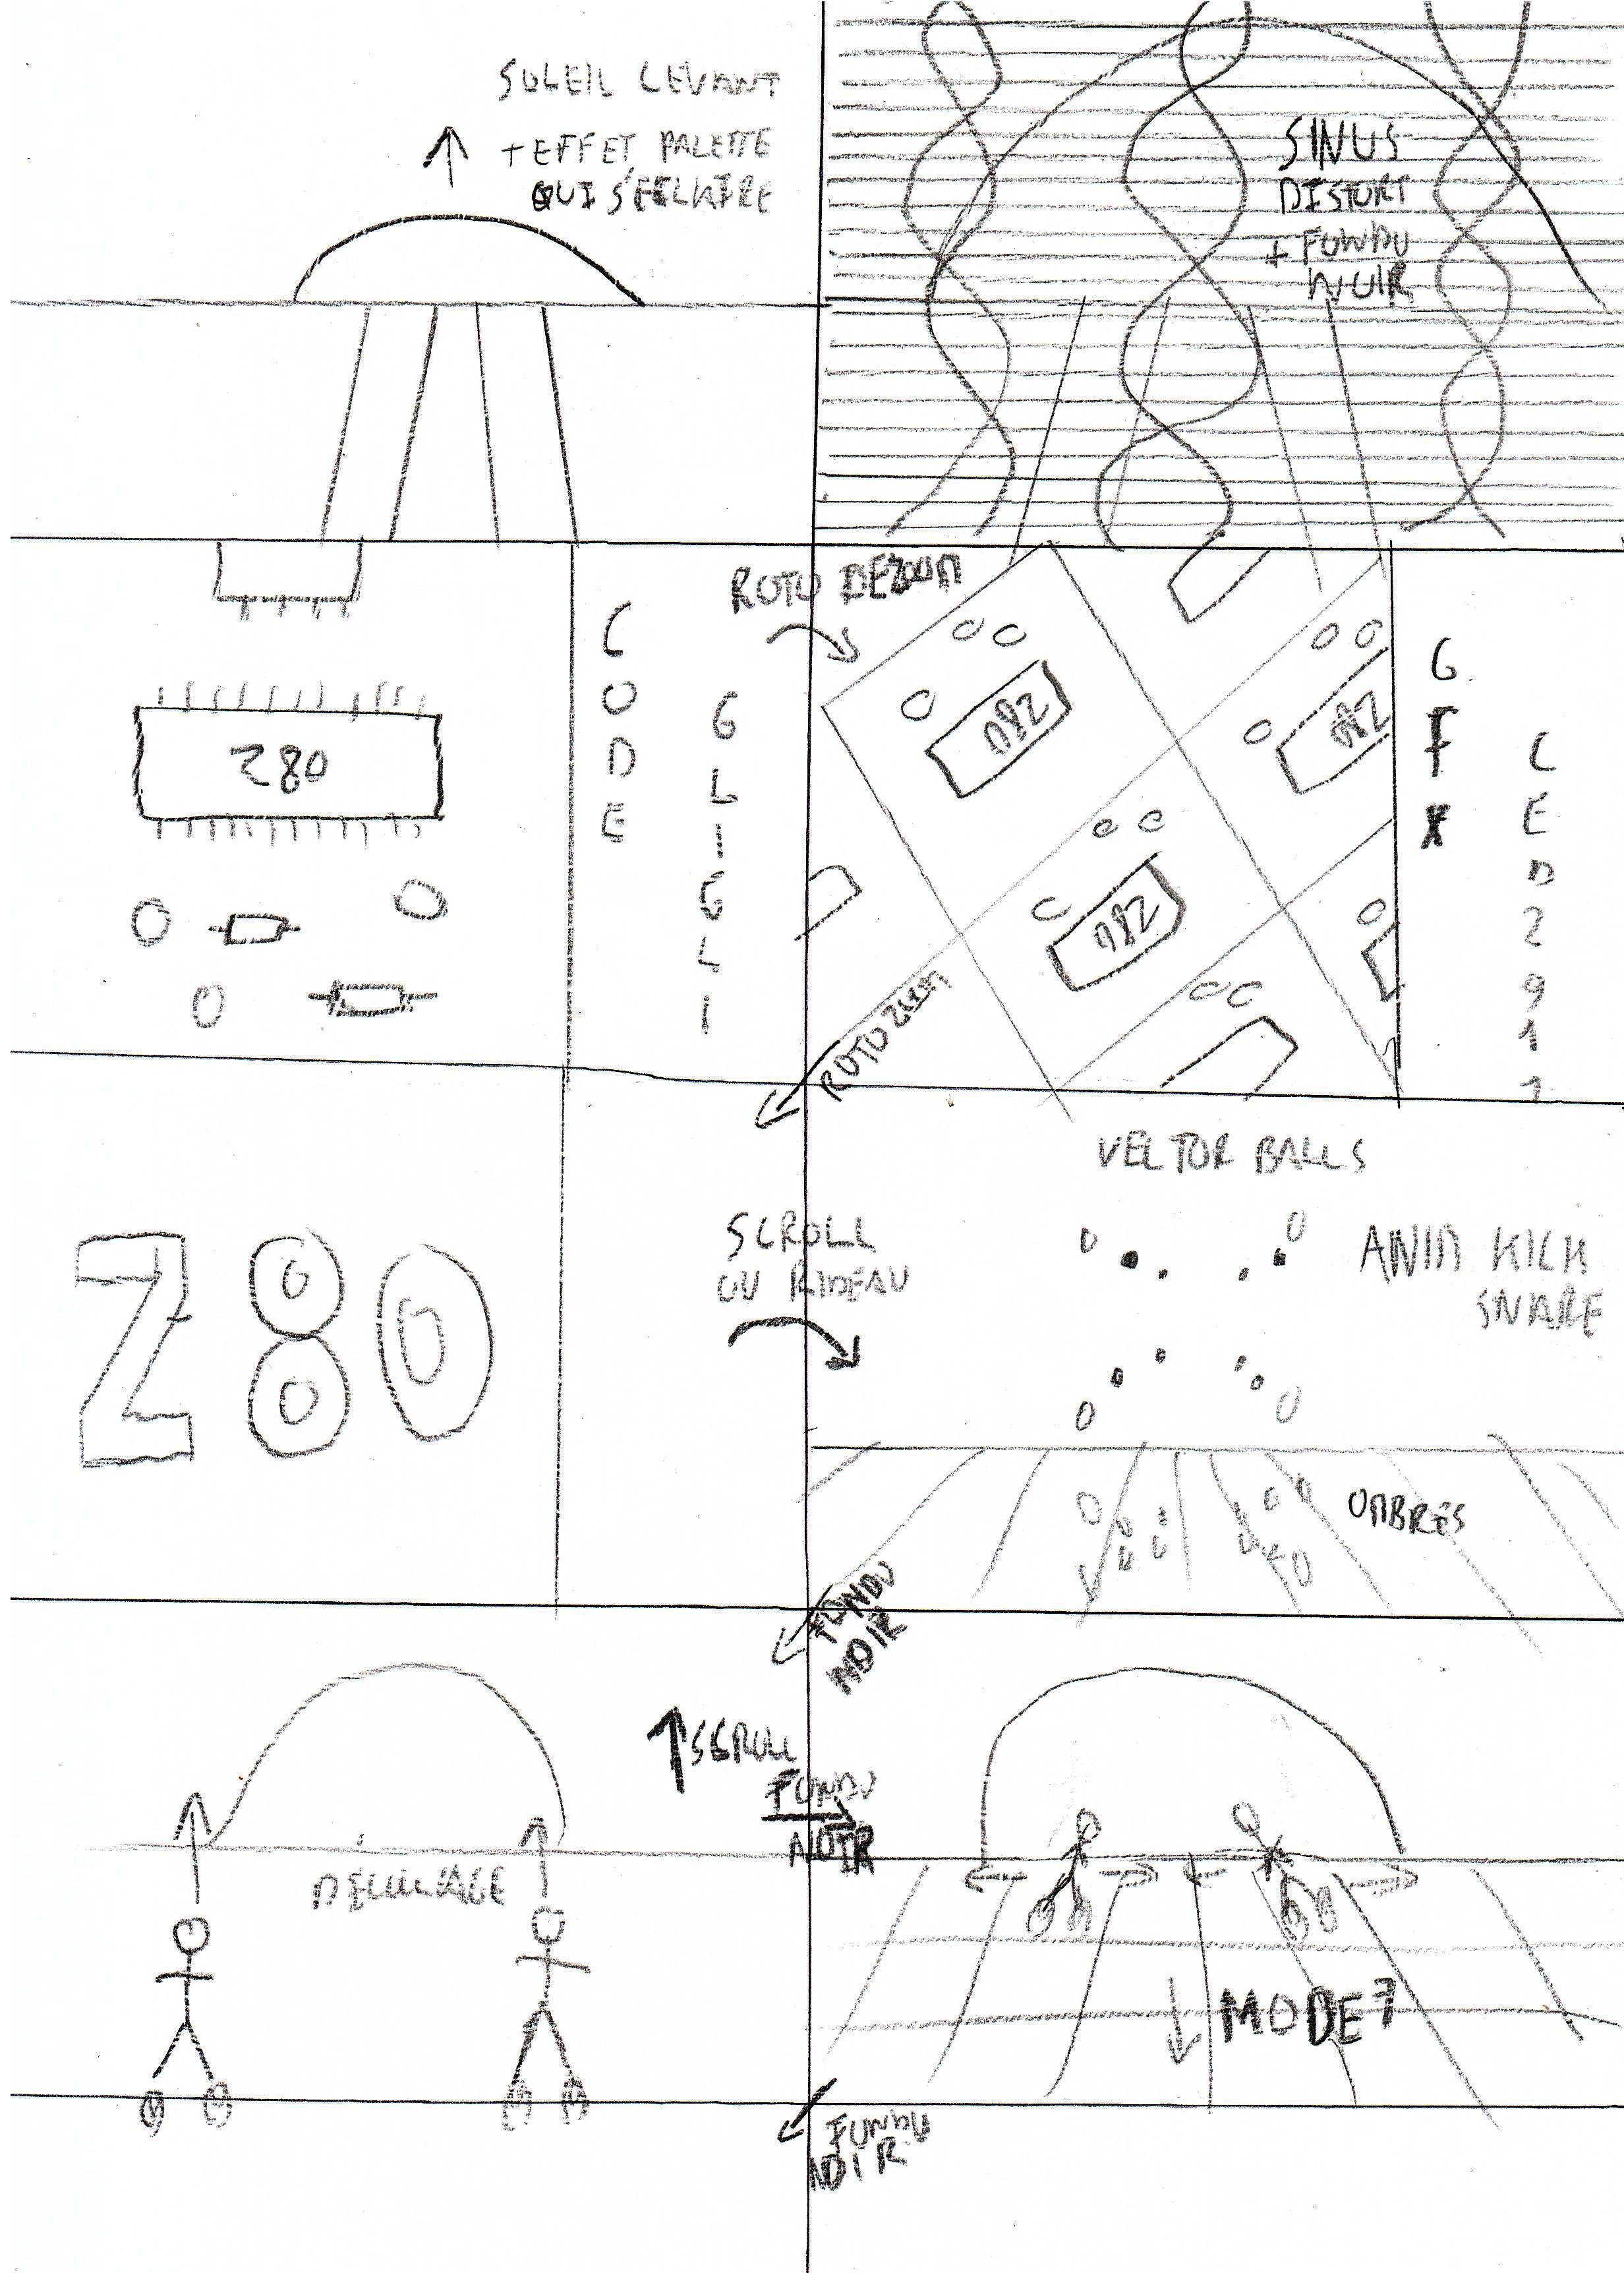 SOLEIL LEVANT
+ EFFET PALETTE
QUI S'ECLAIRE
SINUS
DISTORT
+ FONDU
NOIR
Z80
CODE
GLIGLI
ROTO DEZOOM
Z80
Z80
Z80
GFX
LED2911
ROTO ZOOM
Z80
SCROLL
OU RIDEAU
VECTOR BALLS
ANIM KICK
SNARE
OMBRES
FONDU
NOIR
DECOLLAGE
SCROLL
FONDU
NOIR
MODE7
FONDU
NOIR